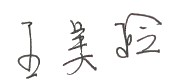 王美玲